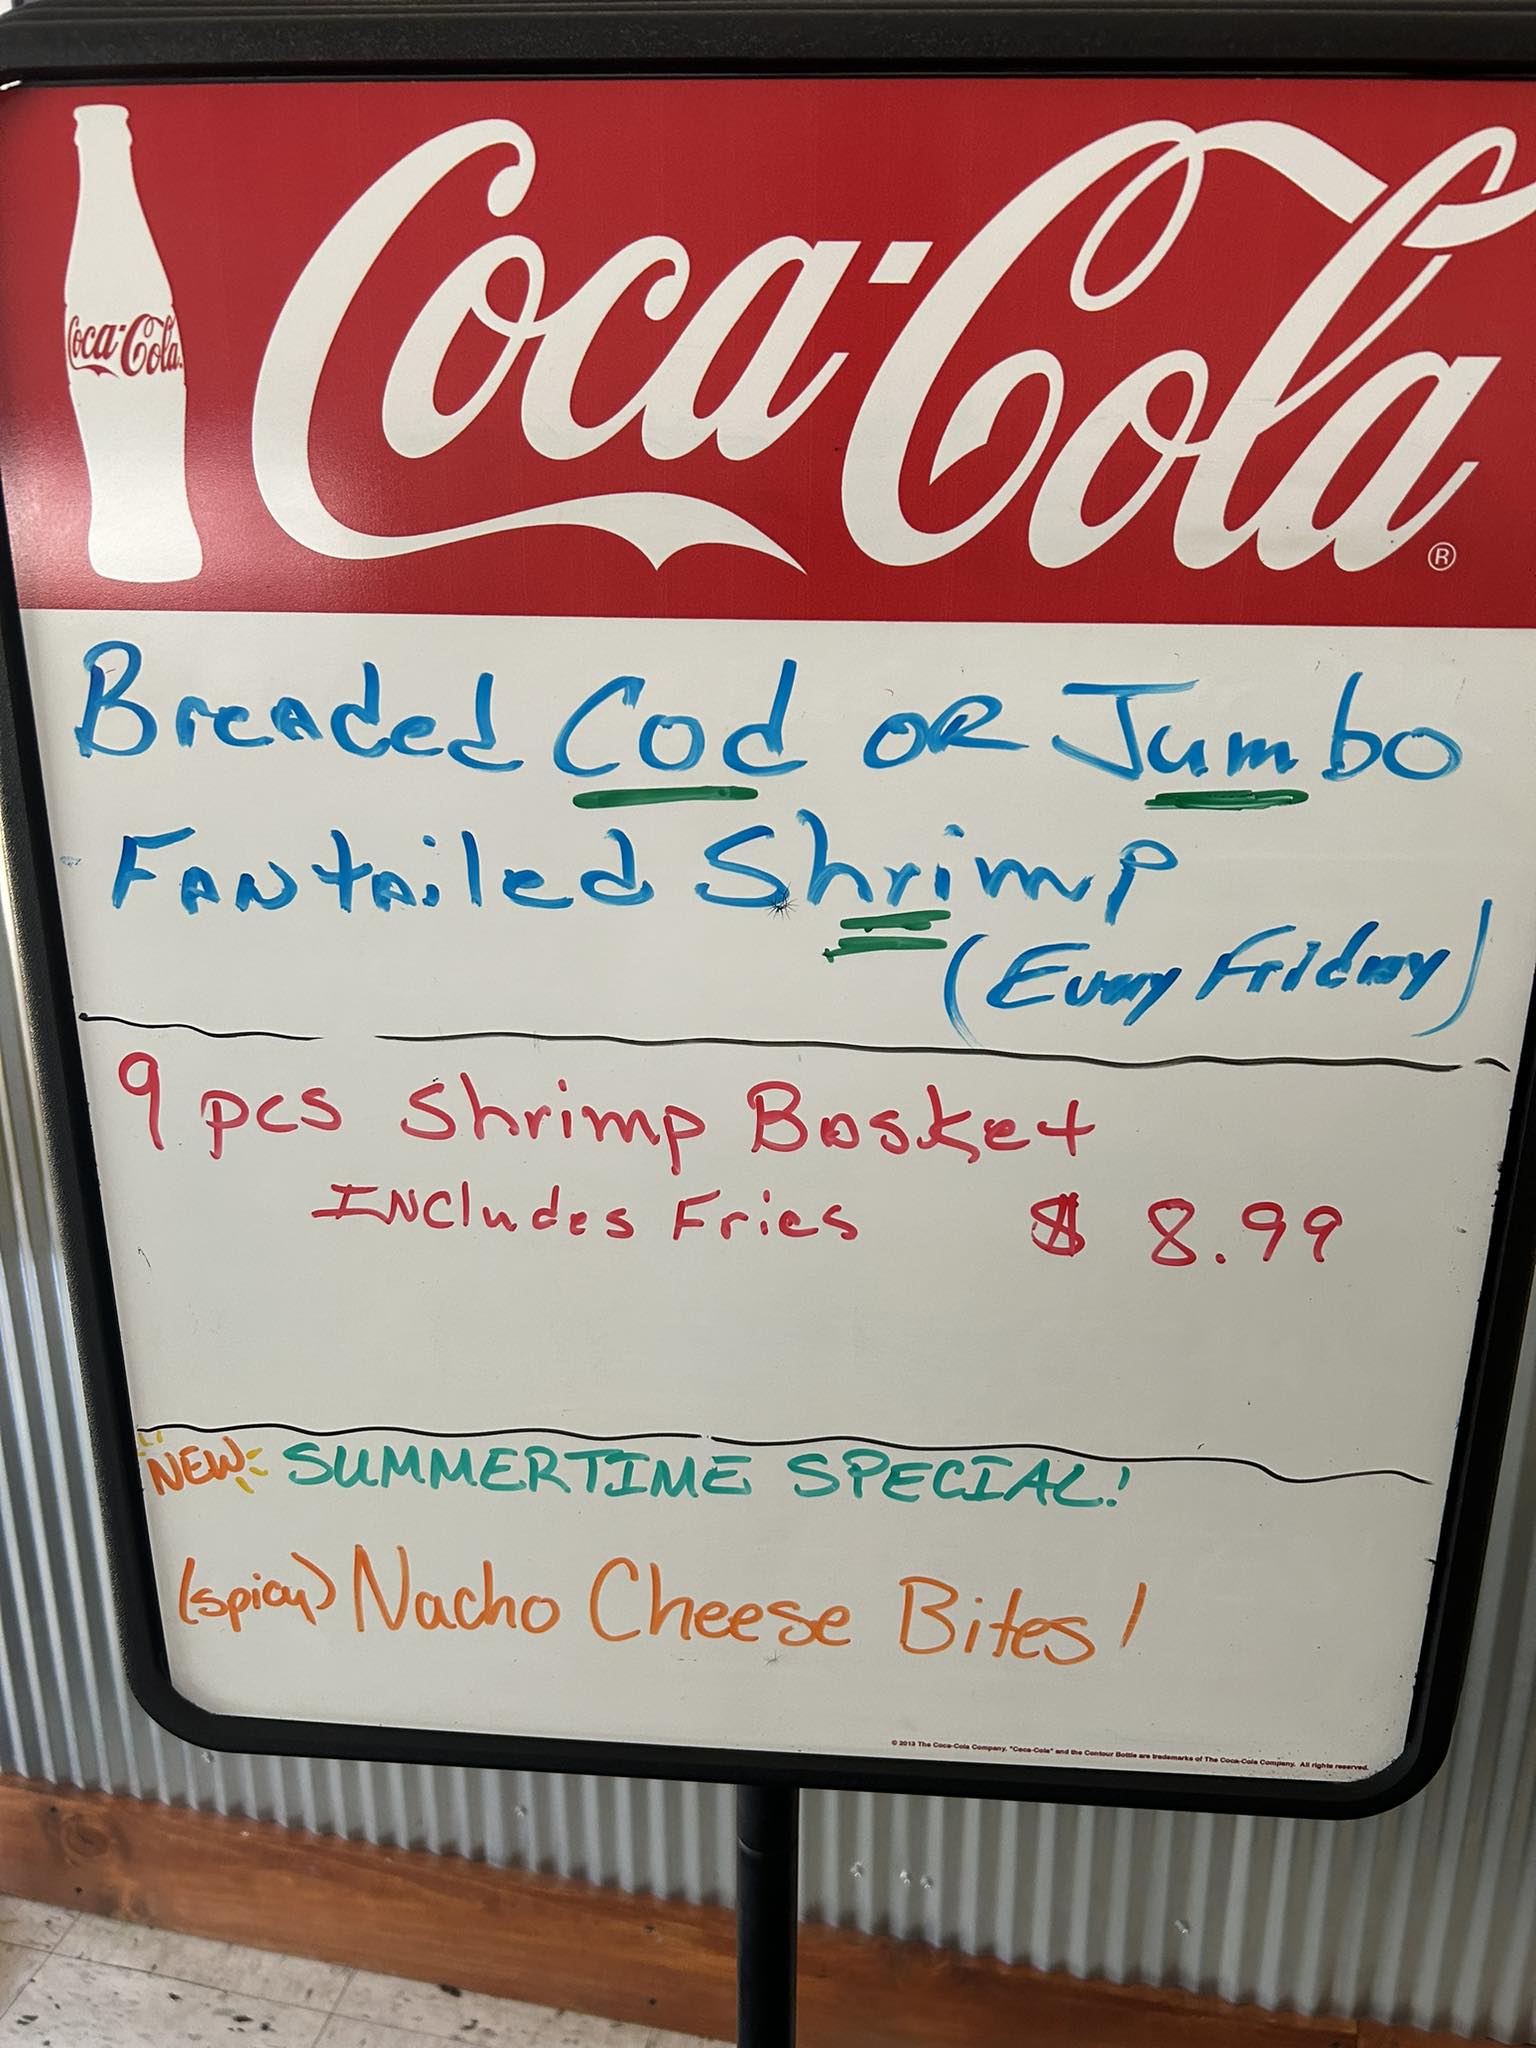 Coca-Cola
Coca-Cola ®
Breaded Cod or Jumbo
Fantailed Shrimp
(Every Friday)
9 pcs Shrimp Basket
Includes Fries $ 8.99
NEW SUMMERTIME SPECIAL!
(spicy) Nacho Cheese Bites!
© 2013 The Coca-Cola Company. "Coca-Cola" and the Contour Bottle are trademarks of The Coca-Cola Company. All rights reserved.